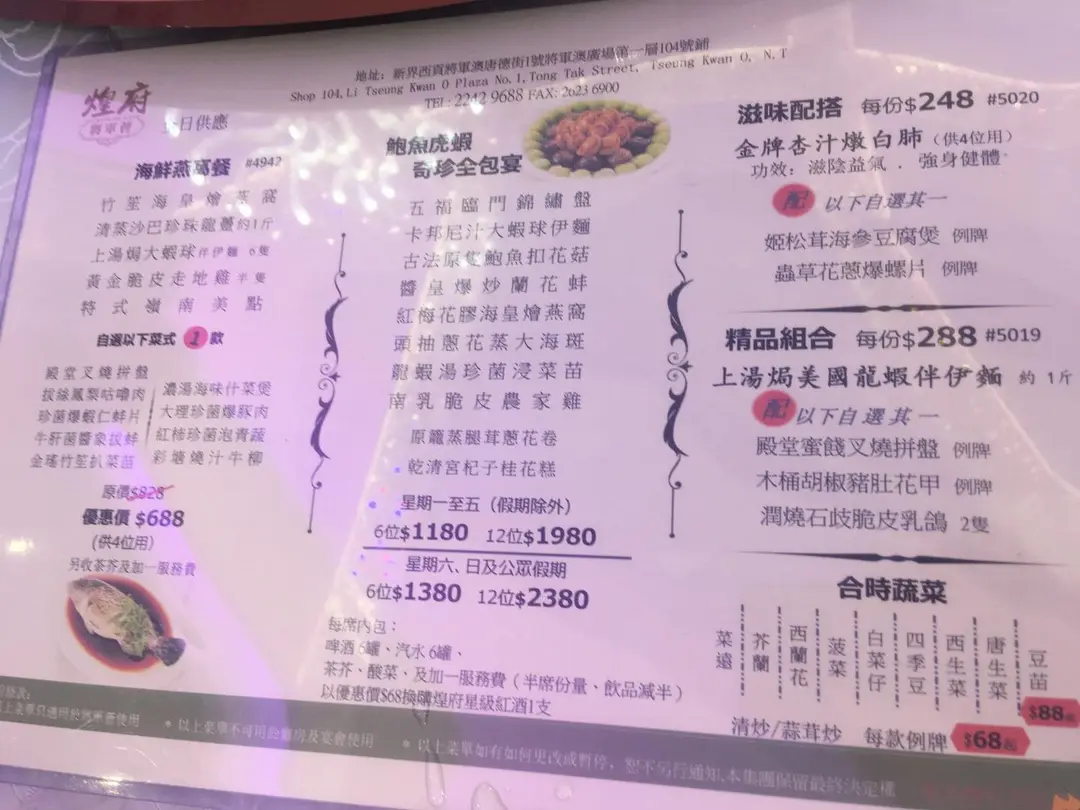 地址：新界西貢將軍澳唐德街1號將軍澳廣場第一層104號鋪
Shop 104, Li Tseung Kwan O Plaza No. 1, Tong Tak Street, Tseung Kwan O, N.T
TEL: 2242 9688 FAX: 2623 6900
煌府
將軍澳
日供應
海鮮燕窩餐 #4942
竹笙海皇燴燕窩
清蒸沙巴珍珠龍躉約1斤
上湯焗大蝦球伴伊麵 6隻
黃金脆皮走地雞半隻
特式嶺南美點
自選以下菜式 1 款
殿堂叉燒拼盤
拔絲鳳梨咕嚕肉
珍菌爆蝦仁蚌片
牛肝菌醬象拔蚌
金瑤竹笙扒菜苗
濃湯海味什菜煲
大理珍菌爆豚肉
紅柿珍菌泡青蔬
彩塘燒汁牛柳
原價$828
優惠價 $688
(供4位用)
另收茶芥及加一服務費
鮑魚虎蝦
奇珍全包宴
五福臨門錦繡盤
卡邦尼汁大蝦球伊麵
古法原隻鮑魚扣花菇
醬皇爆炒蘭花蚌
紅梅花膠海皇燴燕窩
頭抽蔥花蒸大海斑
龍蝦湯珍菌浸菜苗
南乳脆皮農家雞
原籠蒸腿茸蔥花卷
乾清宮杞子桂花糕
星期一至五（假期除外）
6位$1180 12位$1980
星期六、日及公眾假期
6位$1380 12位$2380
每席內包：
啤酒 6罐、汽水 6罐、
茶芥、酸菜、及加一服務費（半席份量、飲品減半）
以優惠價$68換購煌府星級紅酒1支
滋味配搭 每份$248 #5020
金牌杏汁燉白肺（供4位用）
功效：滋陰益氣．強身健體
配 以下自選其一
姬松茸海參豆腐煲 例牌
蟲草花蔥爆螺片 例牌
精品組合 每份$288 #5019
上湯焗美國龍蝦伴伊麵 約1斤
配 以下自選其一
殿堂蜜餞叉燒拼盤 例牌
木桶胡椒豬肚花甲 例牌
潤燒石歧脆皮乳鴿 2隻
合時蔬菜
菜遠
芥蘭
西蘭花
菠菜
白菜仔
四季豆
西生菜
唐生菜
豆苗
$88起
清炒/蒜茸炒 每款例牌 $68起
上菜單只適用於將軍澳使用
* 以上菜單不可用於廂房及宴會使用
* 以上菜單如有如何更改或暫停，恕不另行通知.本集團保留最終決定權